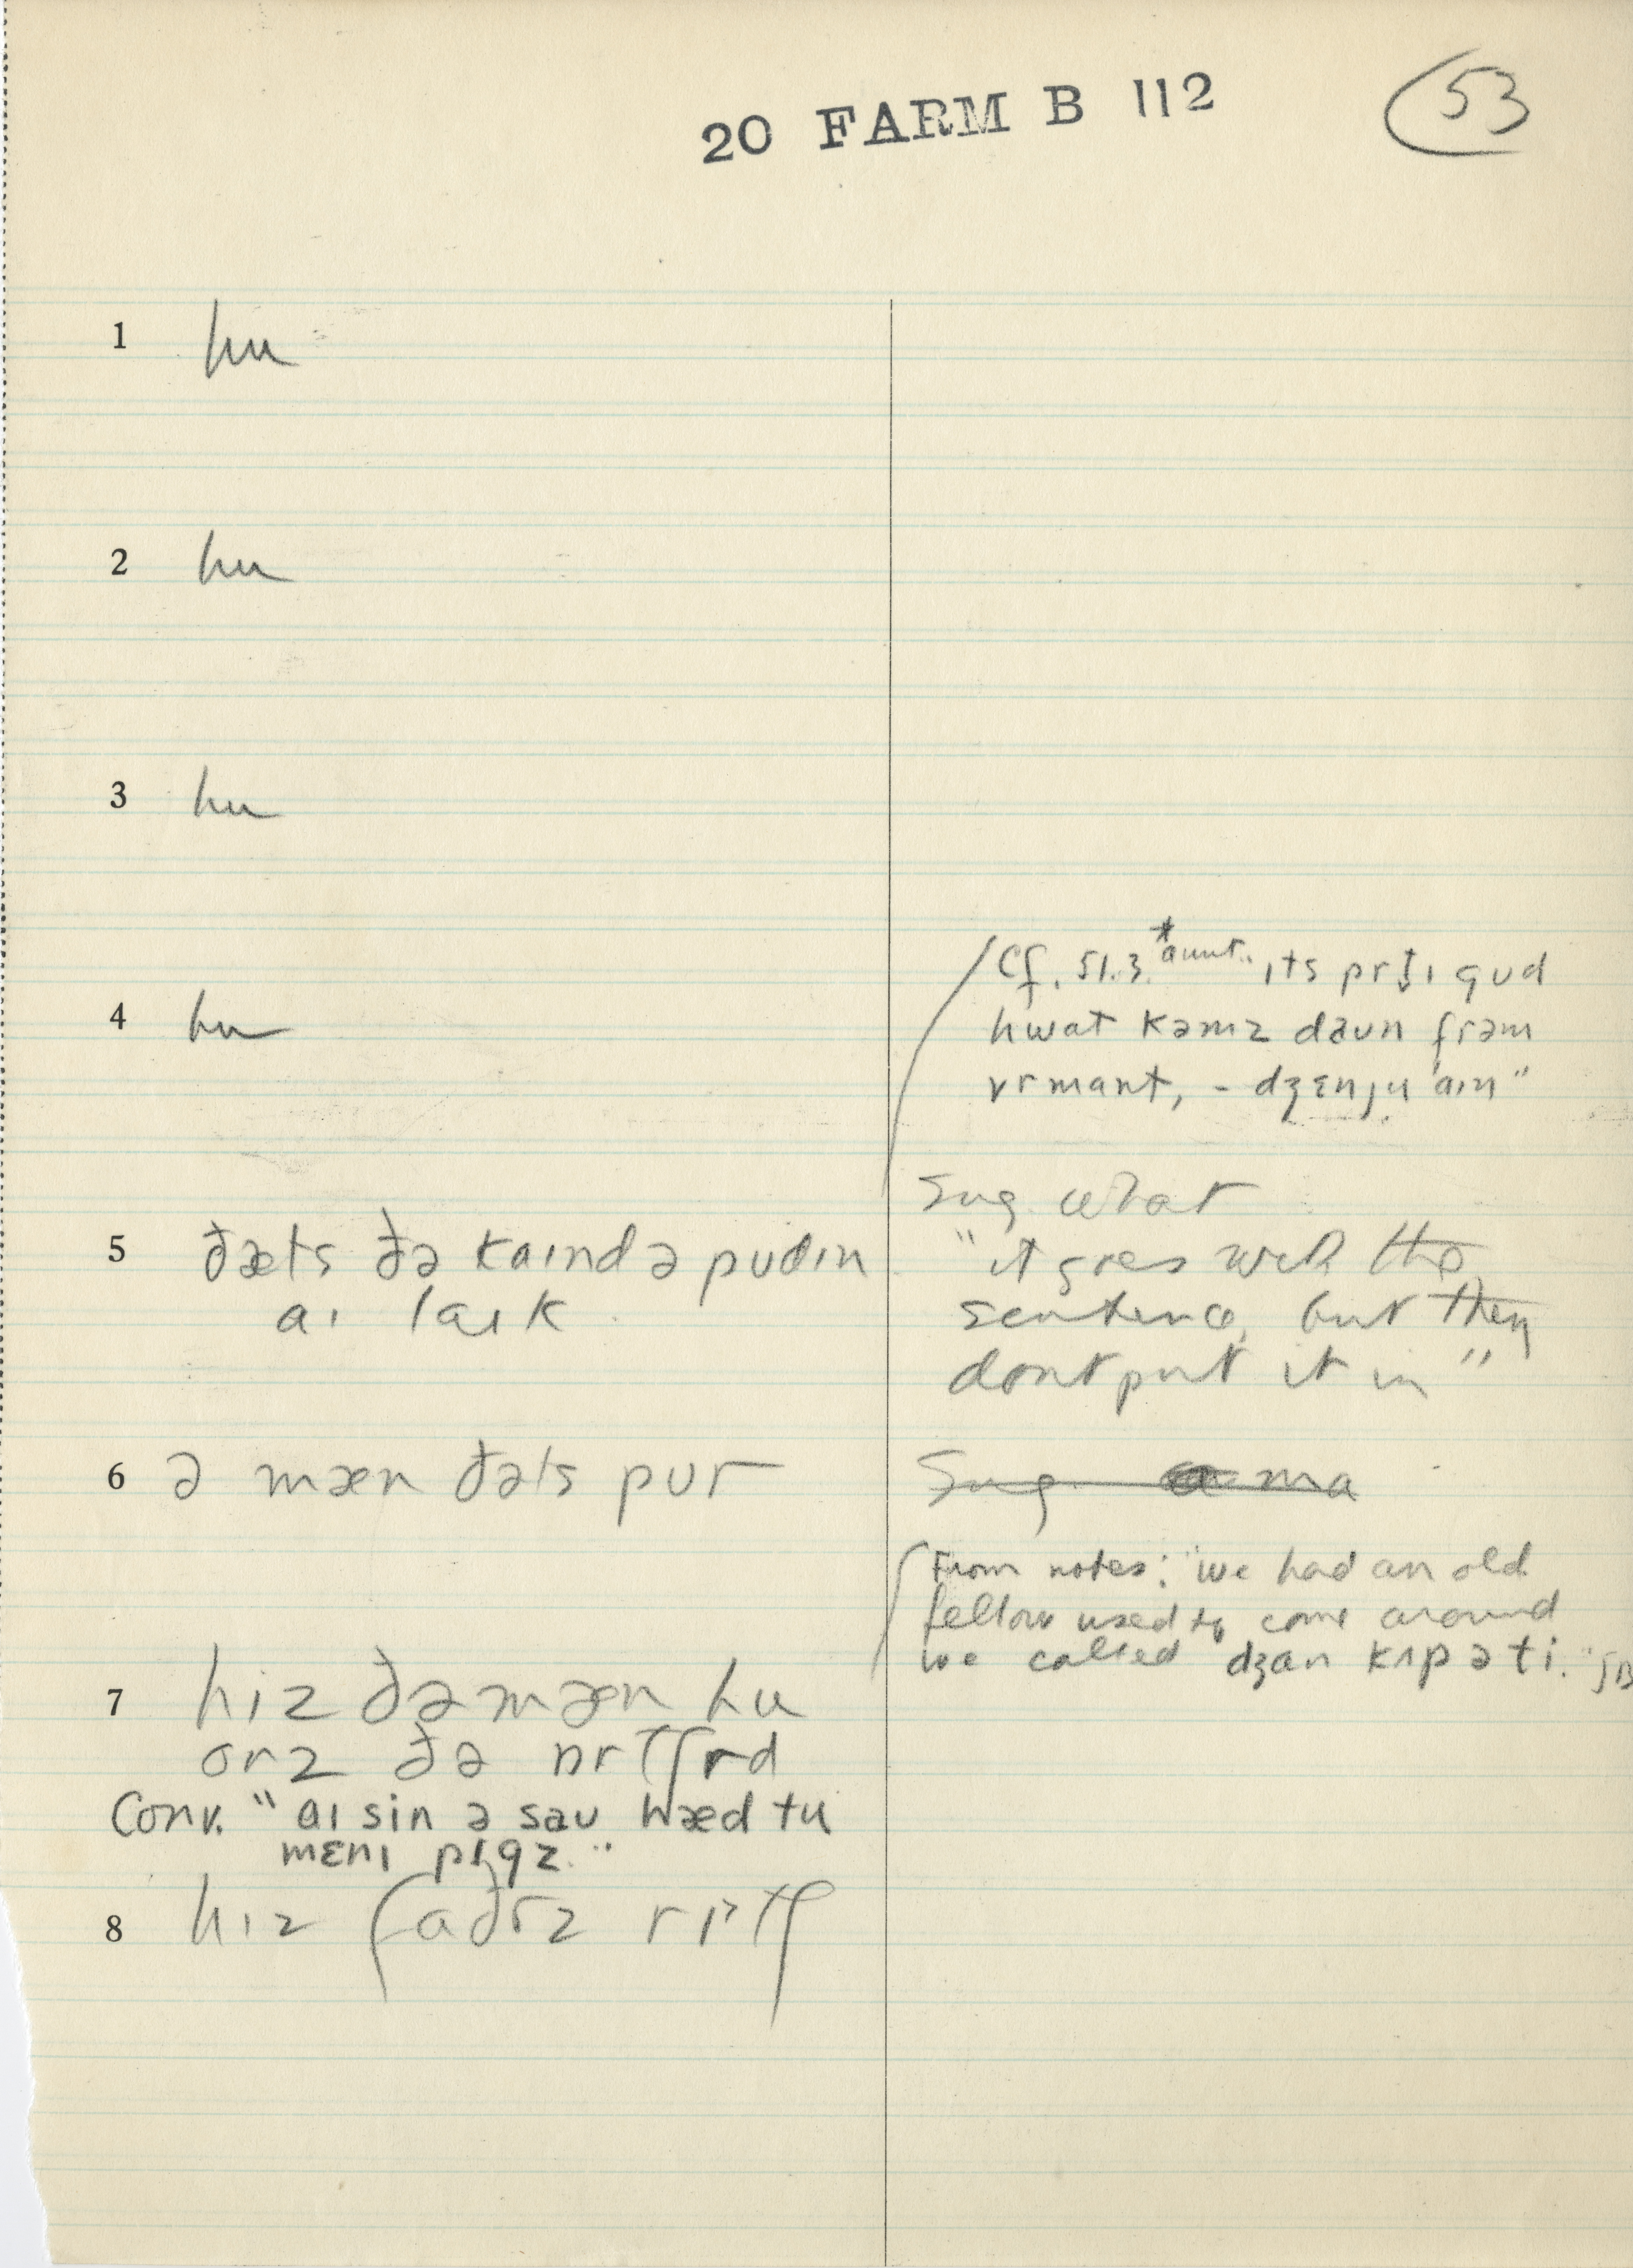 20 FARM B 112
53
1 hu
2 hu
3 hu
4 hu
Cf. 51.3 *aunt.. ɪts gud
hwat kəmz daun frəm
vrmant, - dʒɛnju aɪn"
Sug what
5 ðæts ðə kaɪnd ə pudɪn
aɪ laɪk
"it goes with the
sentence, but they
dont put it in"
6 ə mæn ðəts pur
Sug a ma
From notes: "we had an old
fellow used to come around
we called dʒan kʌpəti."
7 hiz ðə mæn hu
orz ðə ɒrtʃrd
Conv. "aɪ sin ə sau hwæd tu
mɛnɪ pɪgz."
8 hɪz faðrz rɪtʃ